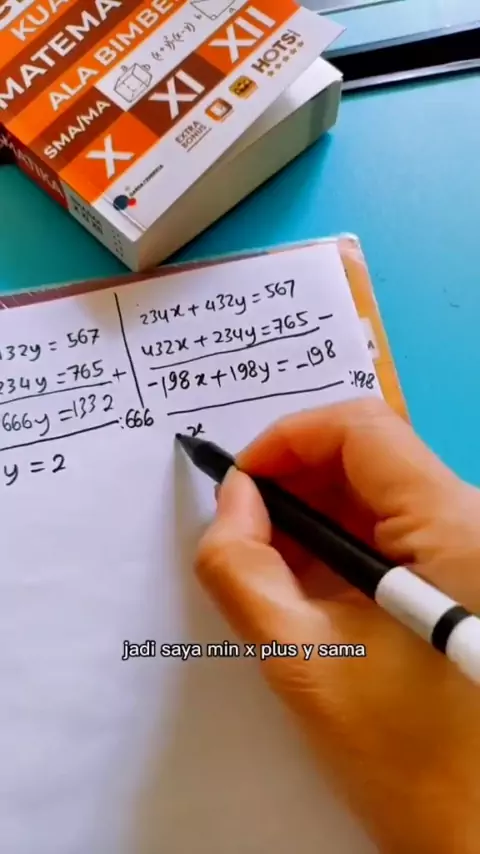 KUA
MATEMA
ALA BIMBE
SMA/MA
X XI XII
EXTRA
BONUS
HOTS!
432y = 567
234y = 765 +
666y = 1332
:666
y = 2
234x + 432y = 567
432x + 234y = 765 -
-198x + 198y = -198
:198
x
jadi saya min x plus y sama